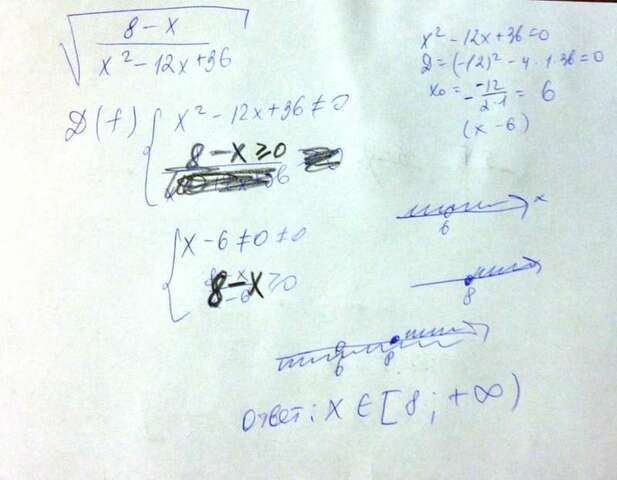 √((8-x)/(x²-12x+36))
x²-12x+36=0
D=(-12)²-4·1·36=0
x₀=-(-12)/(2·1)=6
(x-6)
D(f) { x²-12x+36≠0
8-x≥0
{ x-6≠0
8-x≥0
x
6
8
6 8
Ответ: x∈[8;+∞)